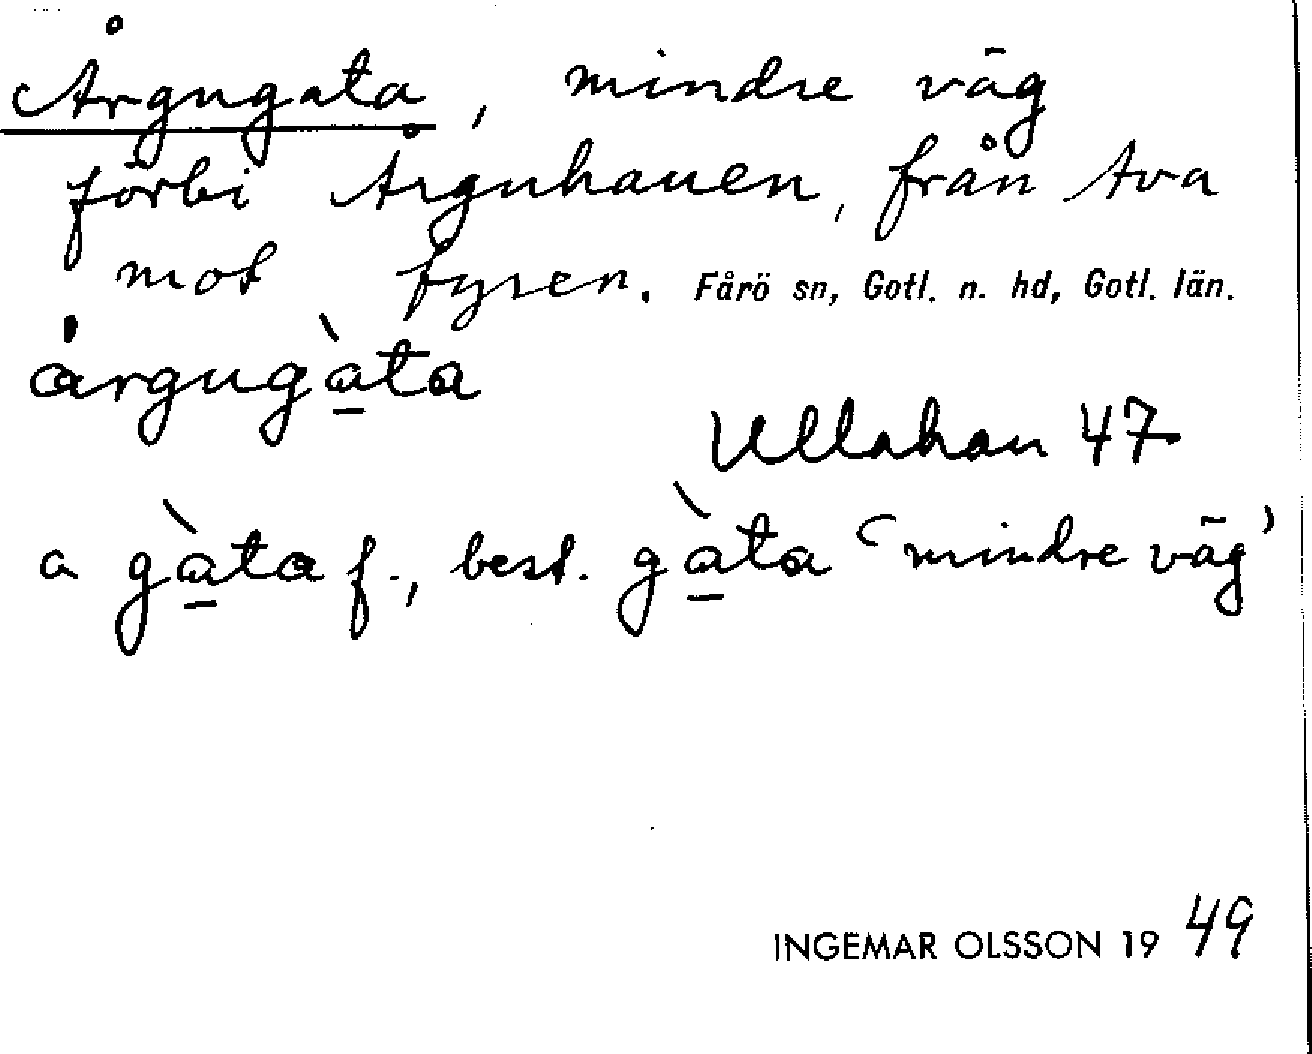 Årgugata, mindre väg
förbi Årguhauen, från Ava
mot fyren. Fårö sn, Gotl. n. hd, Gotl. län.
årgugà̱ta
Ullahau 47
a gà̱ta f., best. gà̱ta 'mindre väg'
INGEMAR OLSSON 1949